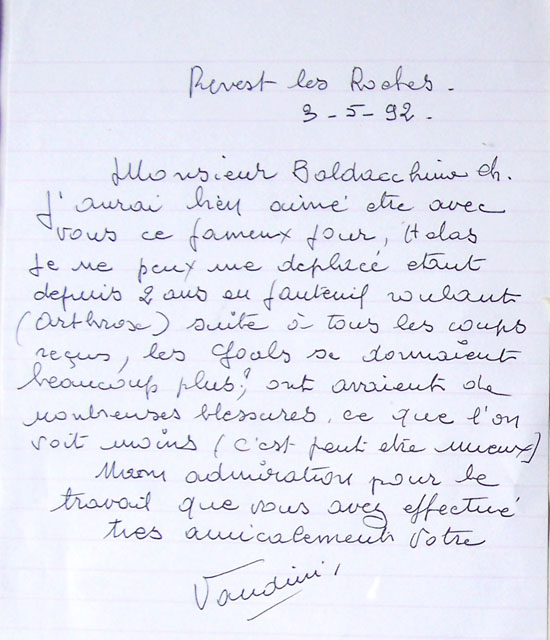 Revest les Roches.
3-5-92.
Monsieur Baldacchino Ch.
J'aurai bien aimé etre avec
vous ce fameux jour, Helas
Je ne peux me deplacé etant
depuis 2 ans en fauteuil roulant
(Arthrose) suite à tous les coups
reçus, les Goals se donnaient
beaucoup plus, ont avaient de
nombreuses blessures, ce que l'on
voit moins (c'est peut etre mieux)
Mon admiration pour le
travail que vous avez effectué
tres amicalement Votre